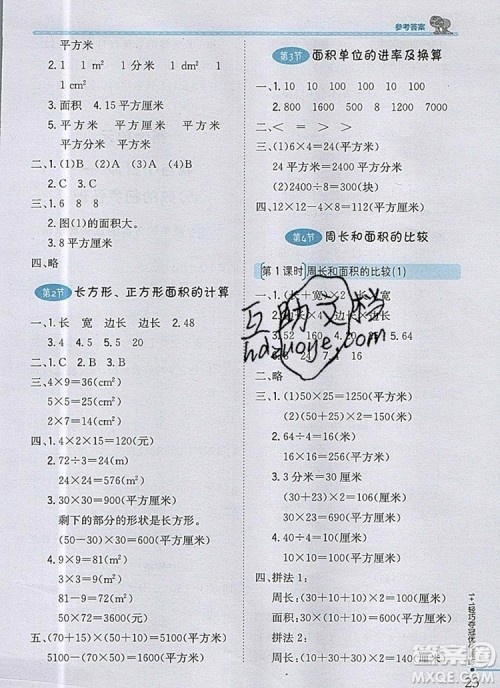 参考答案
平方米
2. cm² dm² m²
3. 面积 4. 15 平方厘米
5. 平方米 平方厘米 平方厘米
平方米 平方厘米
二、1. (1)B (2)C (3)A
2. C 3. C
三、1. 6 8 8
2. 图(1)的面积大。
3. 8 平方厘米
四、略
第2节 长方形、正方形面积的计算
一、1. 长 宽 边长 边长 2. 48
二、1. C 2. B 3. B
三、4×9=36(cm²)
5×5=25(cm²)
2×7=14(cm²)
四、1. 4×2×15=120(元)
2. 72÷3=24(m)
24×24=576(m²)
3. 30×30=900(平方厘米)
剩下的部分的形状是长方形。
(50-30)×30=600(平方厘米)
4. 9×9=81(m²)
8×9=72(m²)
50×72=3600(元)
五、(70+15)×(50+10)=5100(平方厘米)
第3节 面积单位的进率及换算
一、1. 10 10 100 100 100
2. 800 1500 6 1200 7000
二、< = > >
三、1. (1)6×4=24(平方米)
24 平方米=2400 平方分米
(2)2400÷8=300(块)
四、12×12-4×8=112(平方厘米)
第4节 周长和面积的比较
第1课时 周长和面积的比较(1)
一、1. (长+宽)×2 长×宽
2. 边长×4 边长×边长
二、略
三、1. (1)50×25=1250(平方米)
(2)(50+25)×2=150(米)
2. 64÷4=16(米)
16×16=256(平方米)
3. 3 分米=30(厘米)
(30+23)×2=106(厘米)
30×23=690(平方厘米)
四、拼法 1:
周长:(30+10+10)×2=100(厘米)
面积:30×(10+10)=600(平方厘米)
拼法 2:
周长:(30+30+10)×2=140(厘米)
互助文档
hdzuoye.com
1+1轻巧夺冠优
答案圈
MXQE.COM